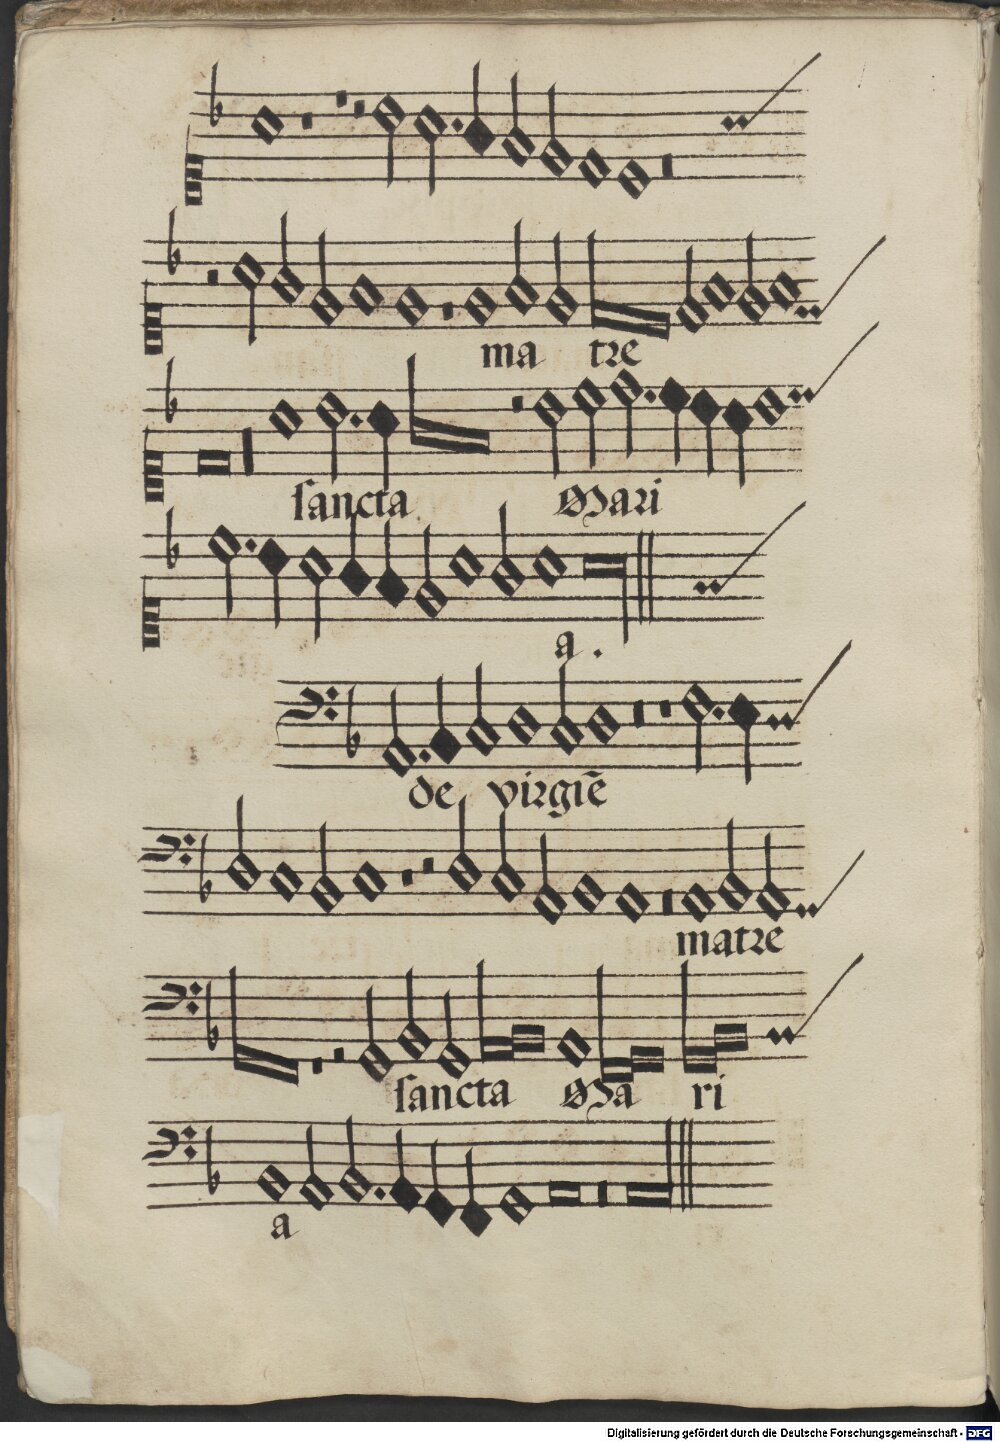 ma tre
sancta Mari
a .
de virgiē
matre
sancta Ma ri
a
Digitalisierung gefördert durch die Deutsche Forschungsgemeinschaft - DFG